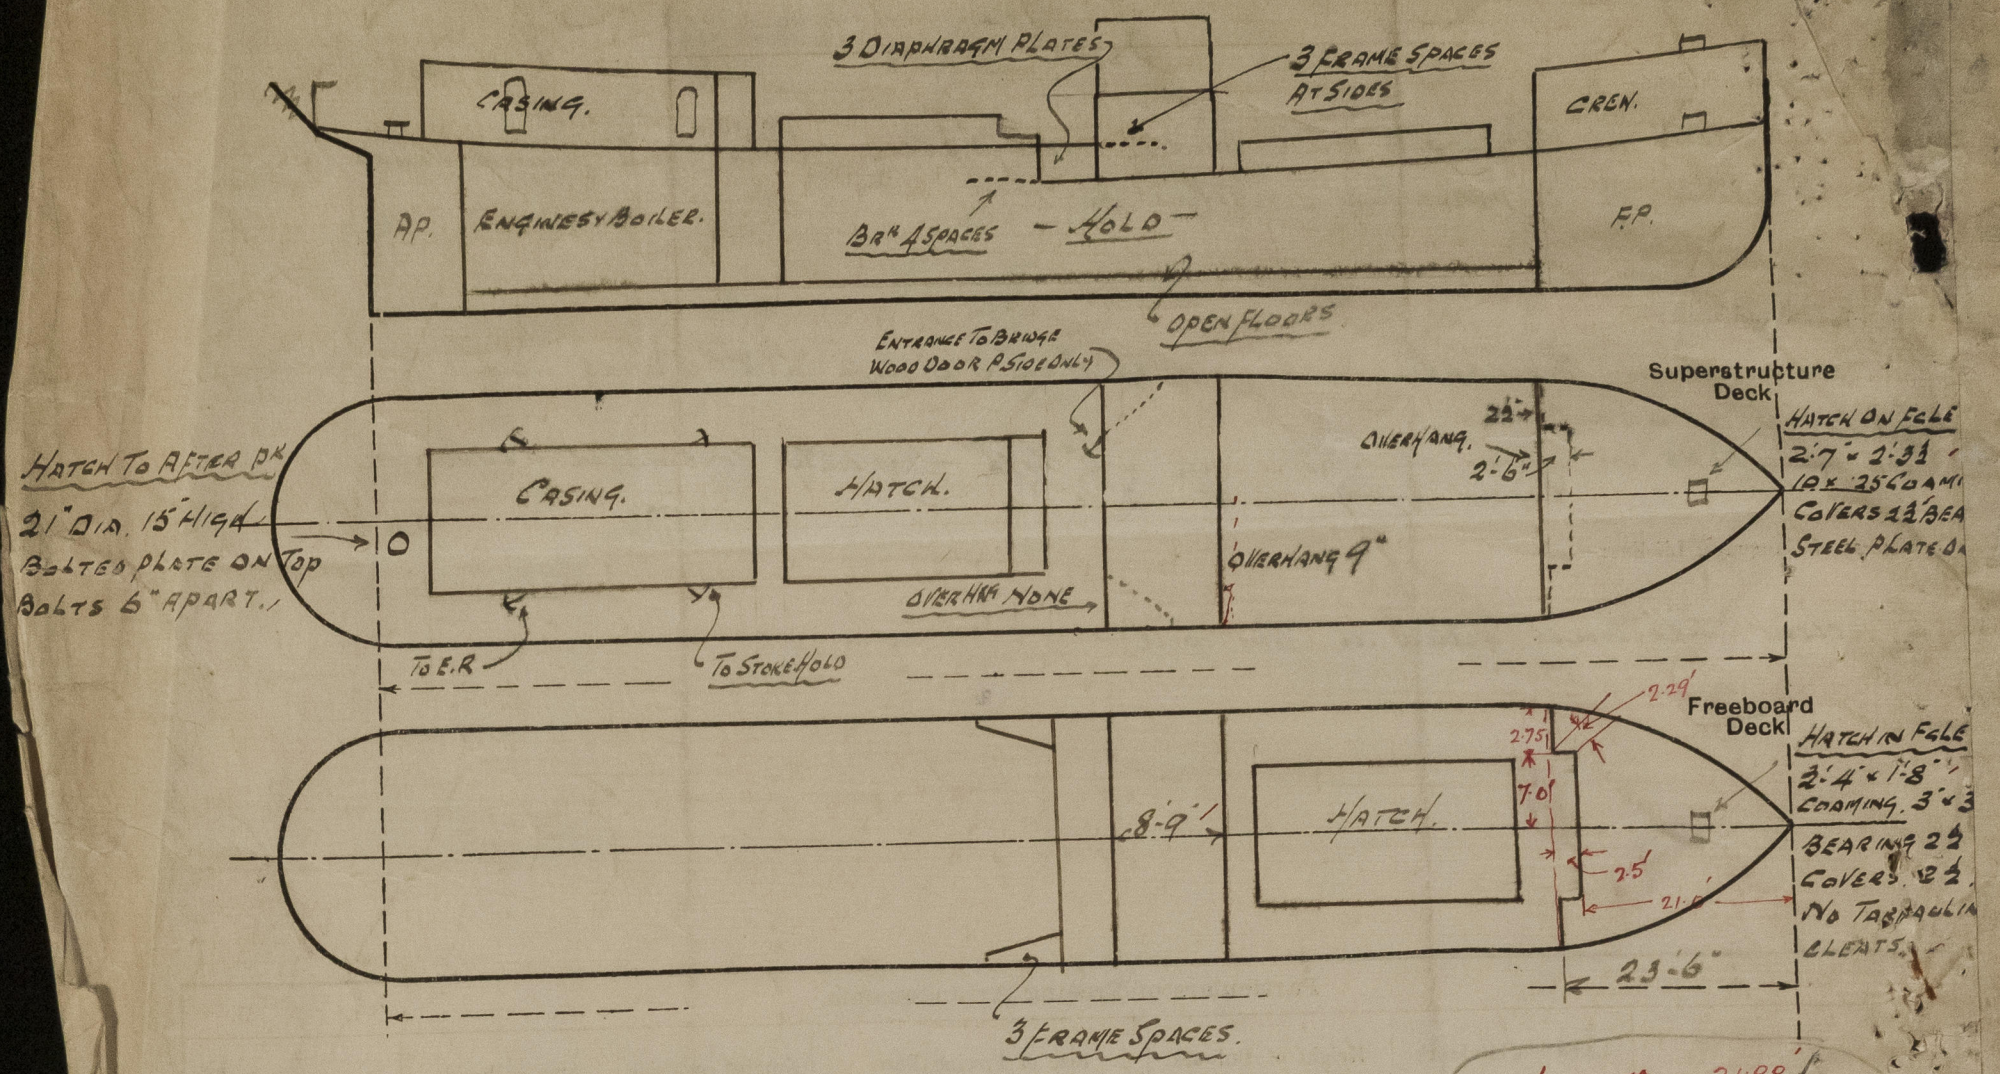 3 DIAPHRAGM PLATES
3 FRAME SPACES
AT SIDES
CASING.
CREW.
A.P.
ENGINES & BOILER.
BRK 4 SPACES
— HOLD —
F.P.
OPEN FLOORS
ENTRANCE TO BRIDGE
WOOD DOOR P SIDE ONLY
Superstructure
Deck
HATCH ON FCLE
2'-7" × 2'-3½
10 × .25 COAMI
COVERS 2½ BEA
STEEL PLATE ON
HATCH TO AFTER PK
21" DIA. 15" HIGH
BOLTED PLATE ON TOP
BOLTS 6" APART.
CASING.
HATCH.
22"
OVERHANG.
2'-6"
OVERHANG 9"
OVERHNG NONE
TO E.R
TO STOKEHOLD
2.29'
Freeboard
Deck
HATCH IN FCLE
2'-4" × 1'-8"
COAMING. 3" × 3
BEARING 2½
COVERS. 2½.
NO TARPAULIN
CLEATS.
2.75'
7.0'
8'-9"
HATCH.
2.5'
21.0'
23'-6"
3 FRAME SPACES.